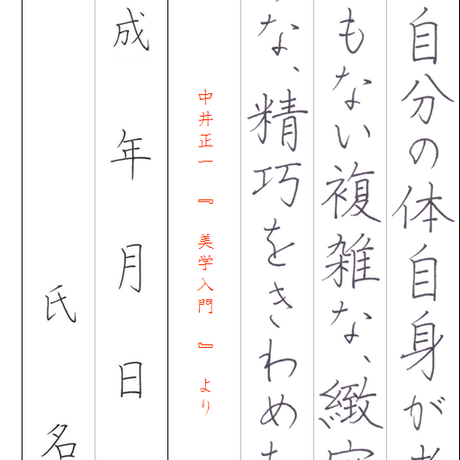 自分の体自身が
もない複雑な、緻
な、精巧をきわめ
中井正一『美学入門』より
成年月日
氏名